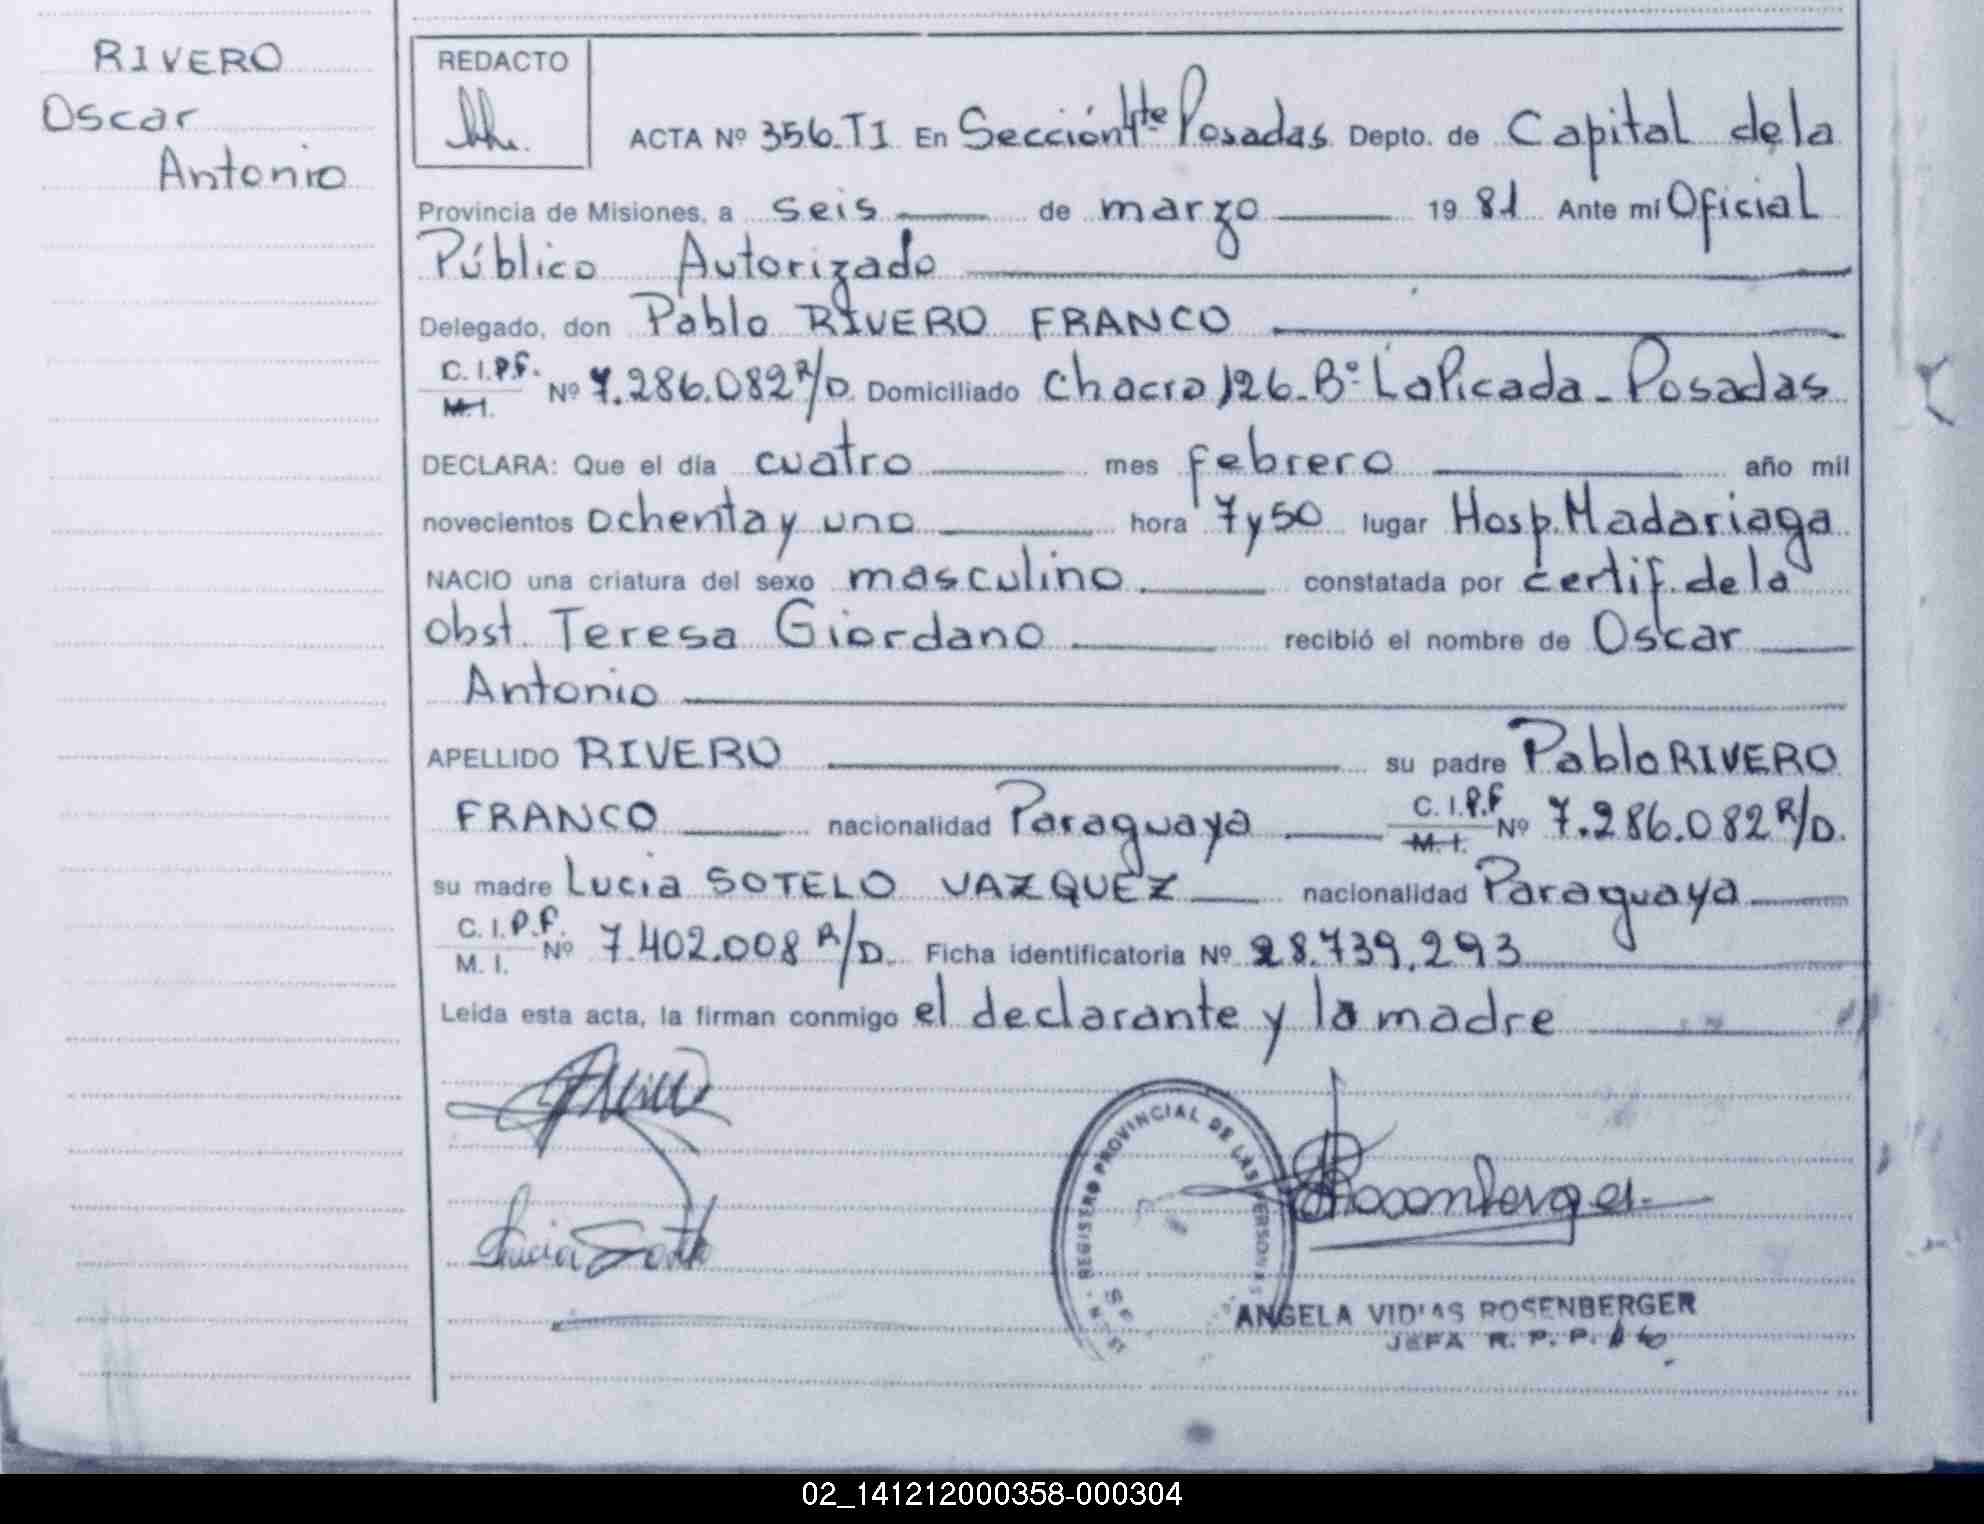 RIVERO
Oscar
Antonio
REDACTO
ACTA Nº 356.TI En Sección 4te Posadas Depto. de Capital de la
Provincia de Misiones, a seis de marzo 1981 Ante mí Oficial
Público Autorizado
Delegado, don Pablo RIVERO FRANCO
C.I.P.F. M.I. Nº 7.286.082 R/D. Domiciliado Chacra 126-Bº La Picada - Posadas
DECLARA: Que el día cuatro mes febrero año mil
novecientos ochenta y uno hora 7 y 50 lugar Hosp. Madariaga
NACIO una criatura del sexo masculino constatada por certif. de la
obst. Teresa Giordano recibió el nombre de Oscar
Antonio
APELLIDO RIVERO su padre Pablo RIVERO
FRANCO nacionalidad Paraguaya C.I.P.F M.I. Nº 7.286.082 R/D.
su madre Lucia SOTELO VAZQUEZ nacionalidad Paraguaya
C.I.P.F. M.I. Nº 7.402.008 R/D. Ficha identificatoria Nº 28.739.293
Leída esta acta, la firman conmigo el declarante y la madre
REGISTRO PROVINCIAL DE LAS PERSONAS
Rosenberger
Lucia Sotelo
ANGELA VIDAS ROSENBERGER
JEFA R. P. P.
02_141212000358-000304